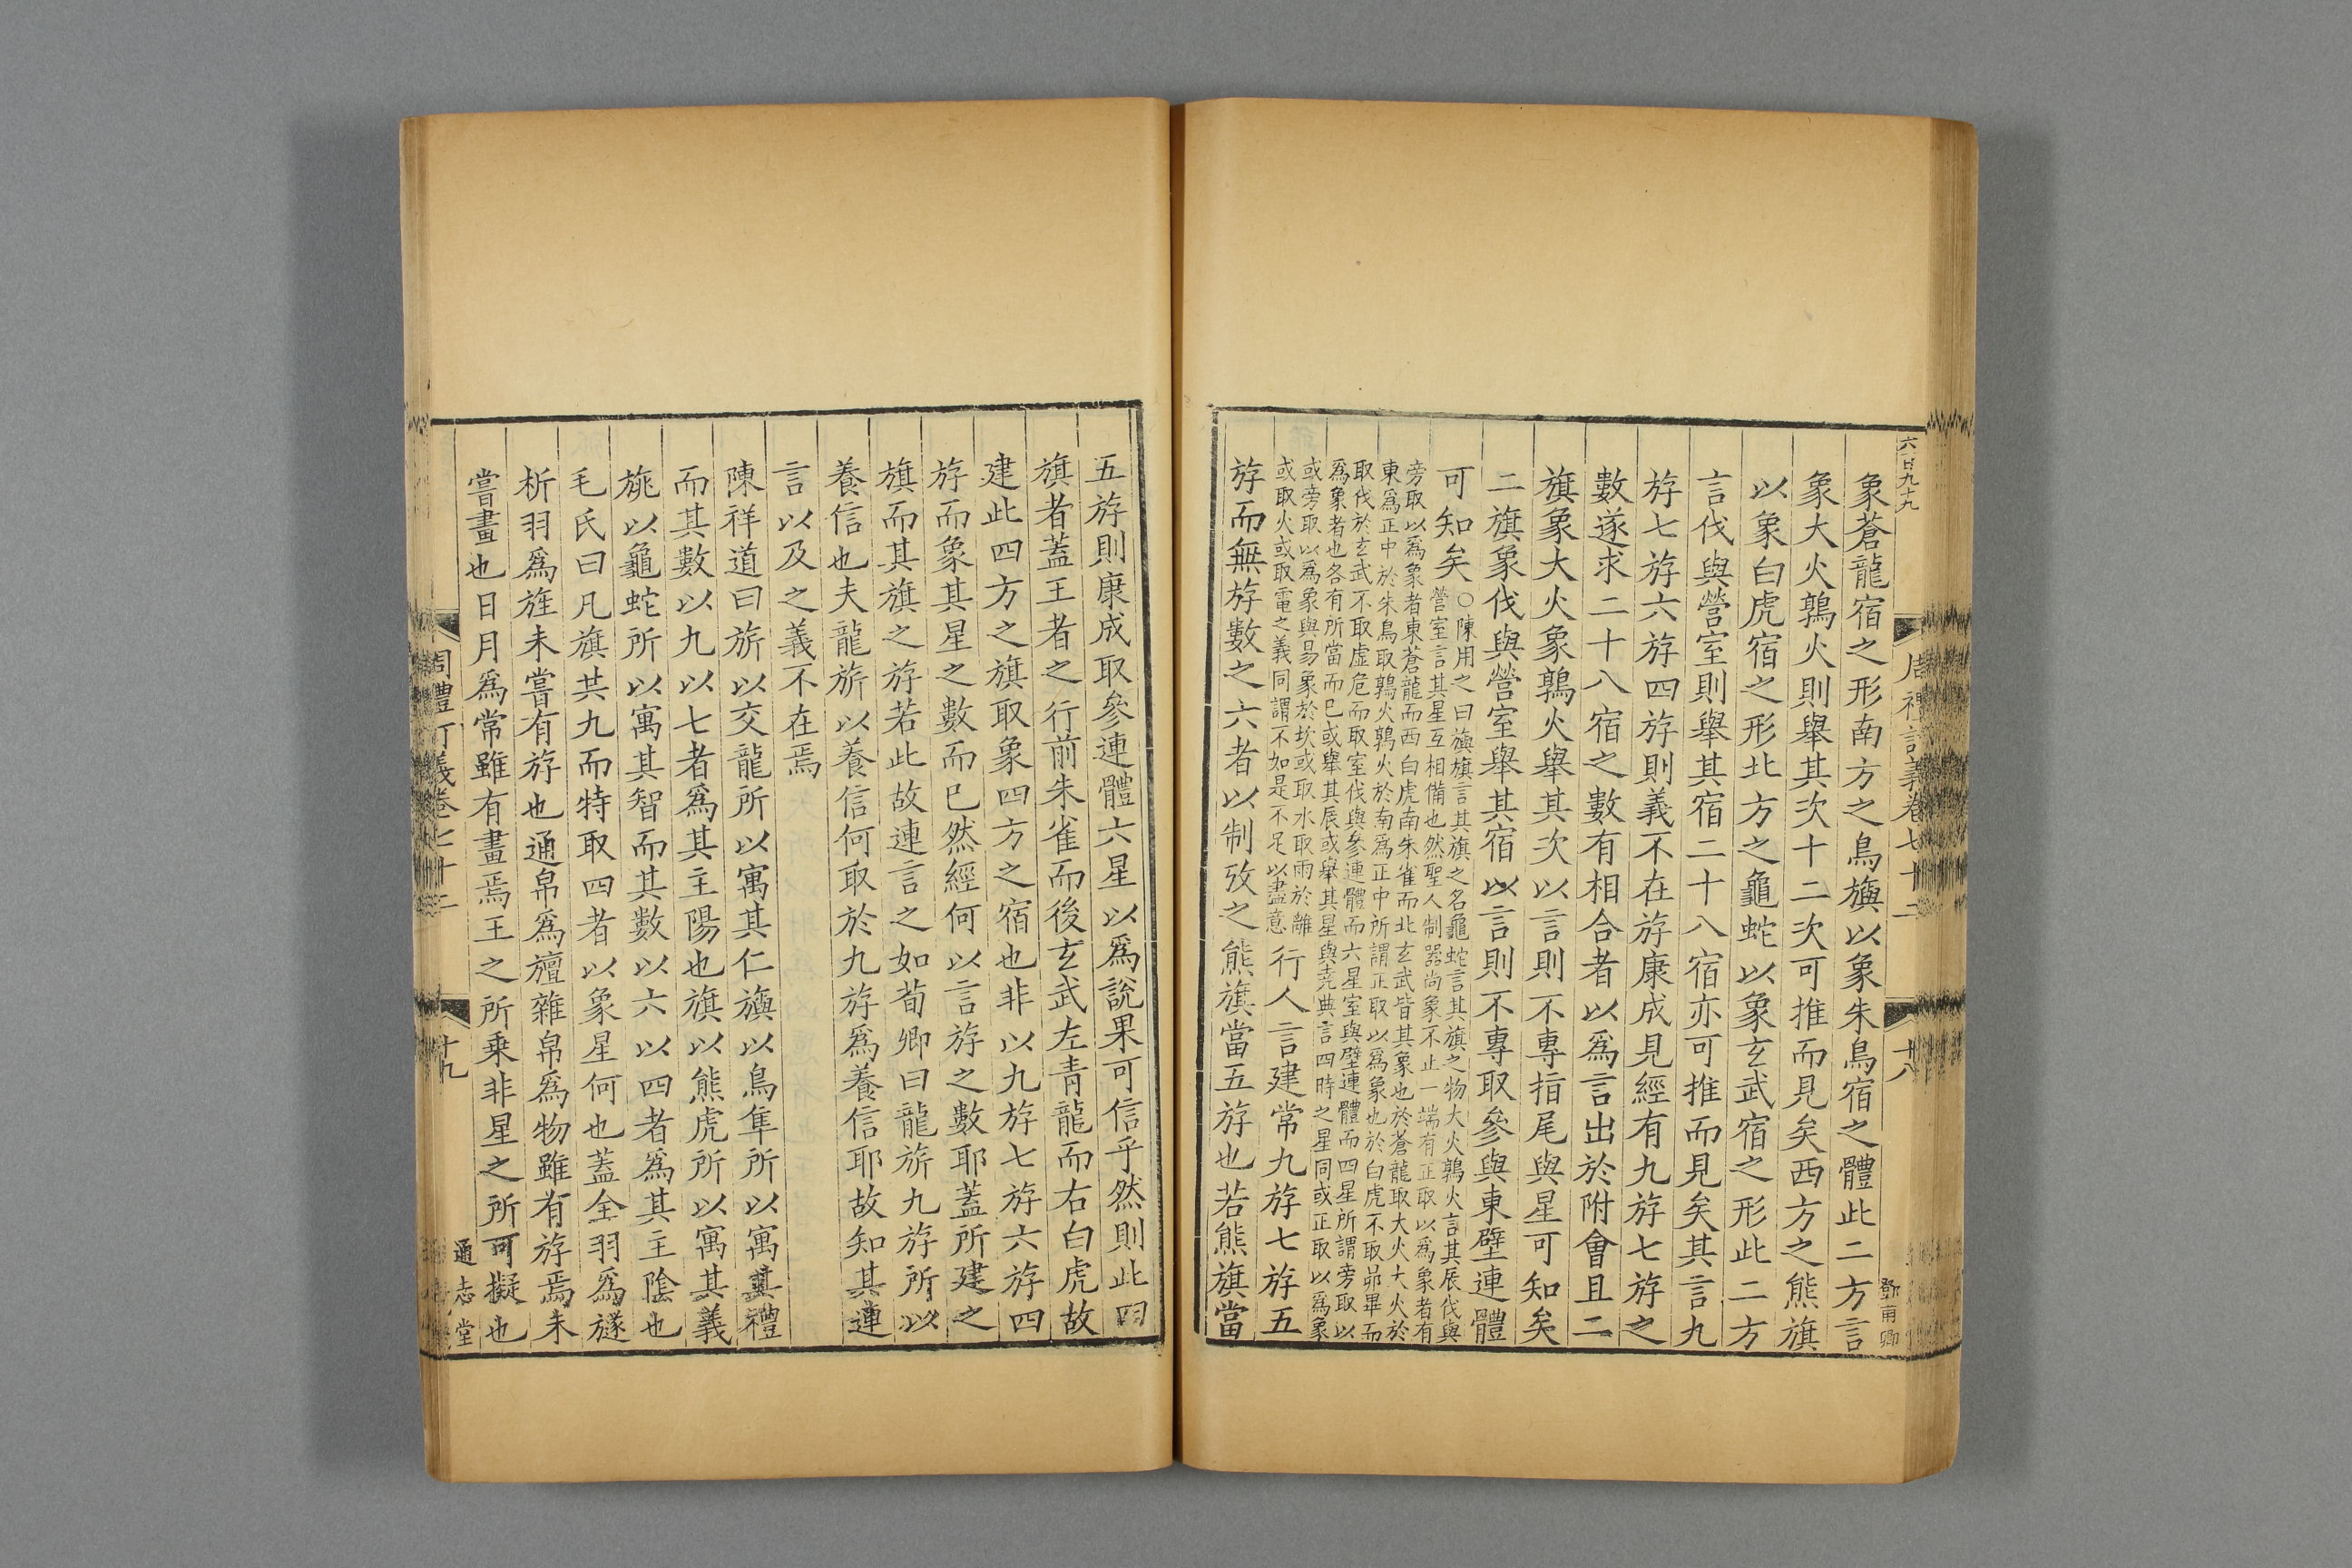 六百九十九
周禮訂義卷七十二
十八
鄧甫卿
象蒼龍宿之形南方之鳥旟以象朱鳥宿之體此二方言
象大火鶉火則舉其次十二次可推而見矣西方之熊旗
以象白虎宿之形北方之龜蛇以象玄武宿之形此二方
言伐與營室則舉其宿二十八宿亦可推而見矣其言九
斿七斿六斿四斿則義不在斿康成見經有九斿七斿之
數遂求二十八宿之數有相合者以為言出於附會且二
旗象大火象鶉火舉其次以言則不專指尾與星可知矣
二旗象伐與營室舉其宿以言則不專取參與東壁連體
可知矣
○陳用之曰旟旗言其旗之名龜蛇言其旗之物大火鶉火言其辰伐與
營室言其星互相備也然聖人制器尚象不止一端有正取以為象者有
旁取以為象者東蒼龍而西白虎南朱雀而北玄武皆其象也於蒼龍取大火大火於
東為正中於朱鳥取鶉火鶉火於南為正中所謂正取以為象也於白虎不取昴畢而
取伐於玄武不取虛危而取室伐與參連體而六星室與壁連體而四星所謂旁取以
為象者也各有所當而已或舉其辰或舉其星與堯典言四時之星同或正取以為象
或旁取以為象與易象於坎或取水取雨於離
或取火或取電之義同謂不如是不足以盡意
行人言建常九斿七斿五
斿而無斿數之六者以制攷之熊旗當五斿也若熊旗當
五斿則康成取參連體六星以為說果可信乎然則此四
旗者蓋王者之行前朱雀而後玄武左青龍而右白虎故
建此四方之旗取象四方之宿也非以九斿七斿六斿四
斿而象其星之數而已然經何以言斿之數耶蓋所建之
旗而其旗之斿若此故連言之如荀卿曰龍旂九斿所以
養信也夫龍旂以養信何取於九斿為養信耶故知其連
言以及之義不在焉
陳祥道曰旂以交龍所以寓其仁旟以鳥隼所以寓其禮
而其數以九以七者為其主陽也旗以熊虎所以寓其義
旐以龜蛇所以寓其智而其數以六以四者為其主陰也
毛氏曰凡旗其九而特取四者以象星何也蓋全羽為旞
析羽為旌未嘗有斿也通帛為旜雜帛為物雖有斿焉未
嘗畫也日月為常雖有畫焉王之所乘非星之所可擬也
周禮訂義卷七十二
十九
通志堂